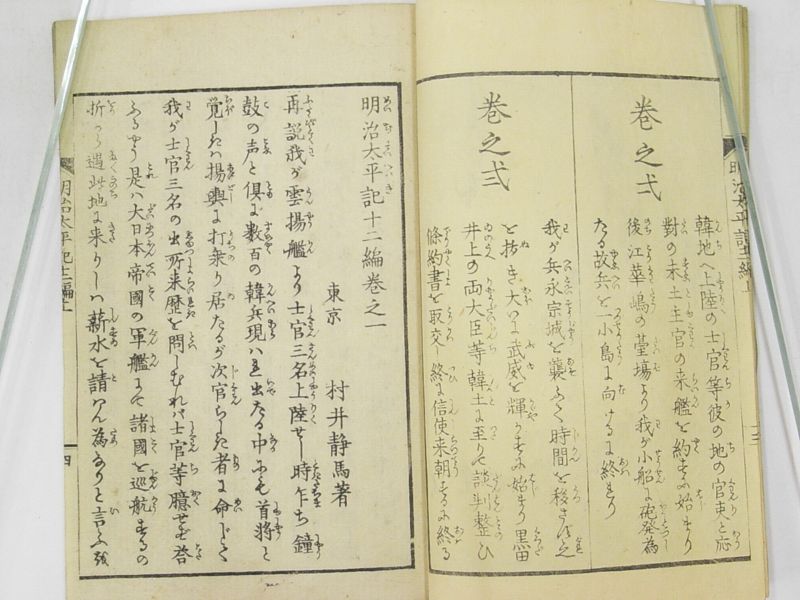 明治太平記十二編上
巻之弌
韓地へ上陸の士官等彼の地の官吏と応
對の末土主官の来艦を約するに始まり
後江華嶋の薹塲より我が小船に砲發為
たる故兵を一小島に向けるに終をり
巻之弍
我が兵永宗城を襲ふて時間を移さず之
を抜き大いに武威を輝かするに始まり黒田
井上の両大臣等韓土に至りて談判整ひ
條約書を取交し終に信使来朝するに終る
明治太平記十二編巻之一
東京　村井静馬著
再説我が雲揚艦より士官三名上陸せし時乍ち鐘
鼓の声と倶に数百の韓兵現はれ出たる中にも首将と
覚しきハ揚輿に打乗り居たるが次官らしき者に命じて
我が士官三名の出所来歴を問しむれバ士官等臆せず答
ふるやう是ハ大日本帝國の軍艦にて諸國を巡航するの
折から遇此地に来りしハ薪水を請はん為なりと言ふ。或
明治太平記十二編上
四